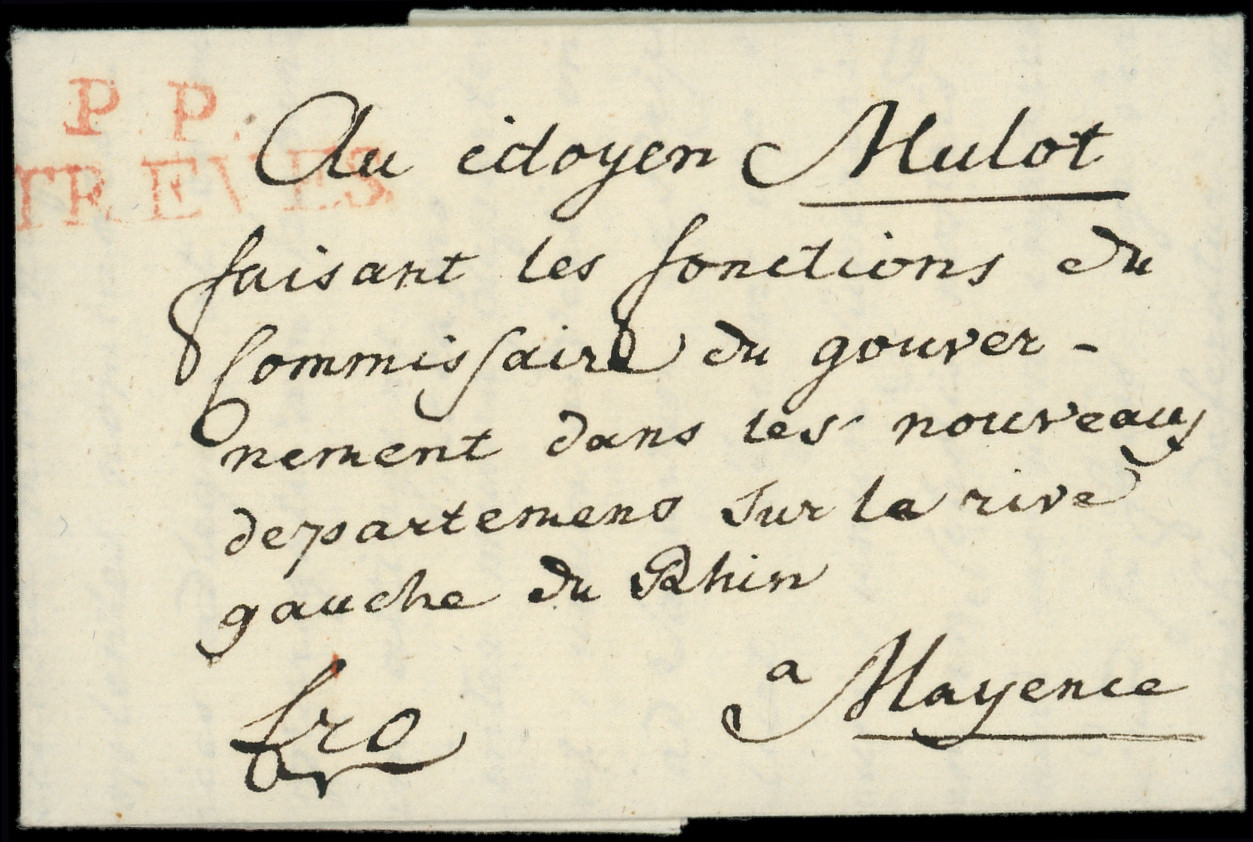 P P
TREVES
Au citoyen Mulot
faisant les fonctions du
Commissaire du gouver-
nement dans les nouveaux
departemens sur la rive
gauche du Rhin
a Mayence
fro